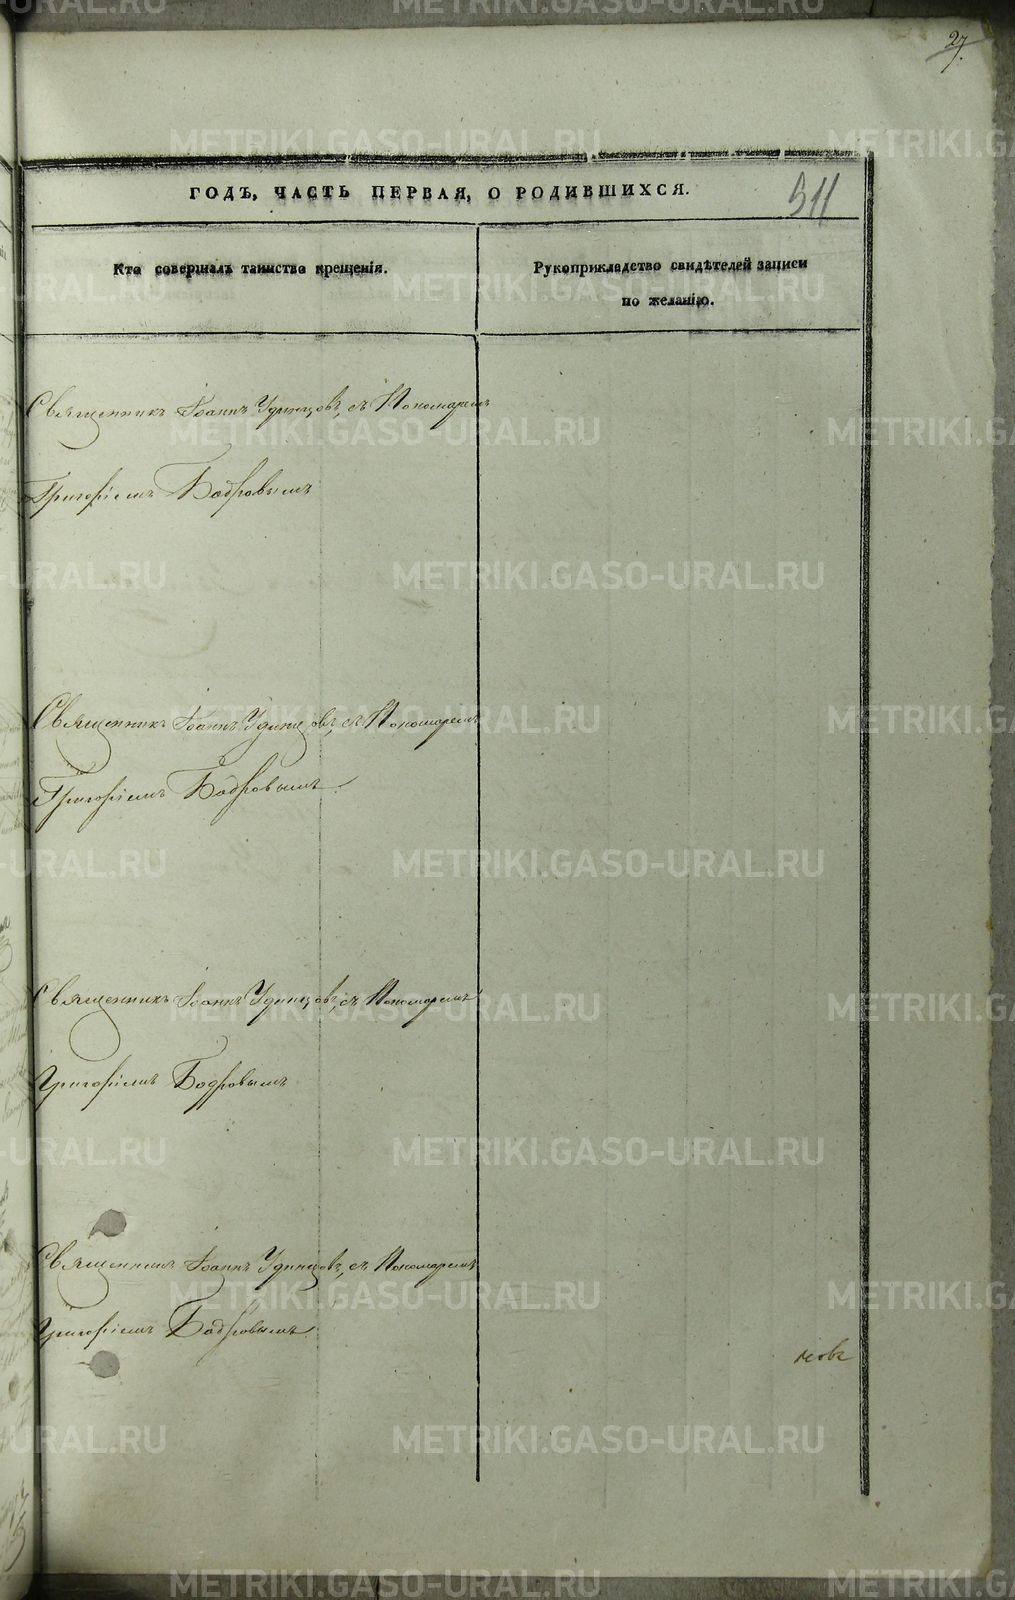 27.
ГОДЪ, ЧАСТЬ ПЕРВАЯ, О РОДИВШИХСЯ.
511
Кто совершалъ таинство крещенія.
Рукоприкладство свидѣтелей записи
по желанію.
Священникъ Іоаннъ Удинцовъ, съ Пономаремъ
Григоріемъ Бобровымъ
Священникъ Іоаннъ Удинцовъ, съ Пономаремъ
Григоріемъ Бобровымъ.
Священникъ Іоаннъ Удинцовъ, съ Пономаремъ
Григоріемъ Бодровымъ
Священникъ Іоаннъ Удинцовъ, съ Пономаремъ
Григоріемъ Бодровымъ
METRIKI.GASO-URAL.RU